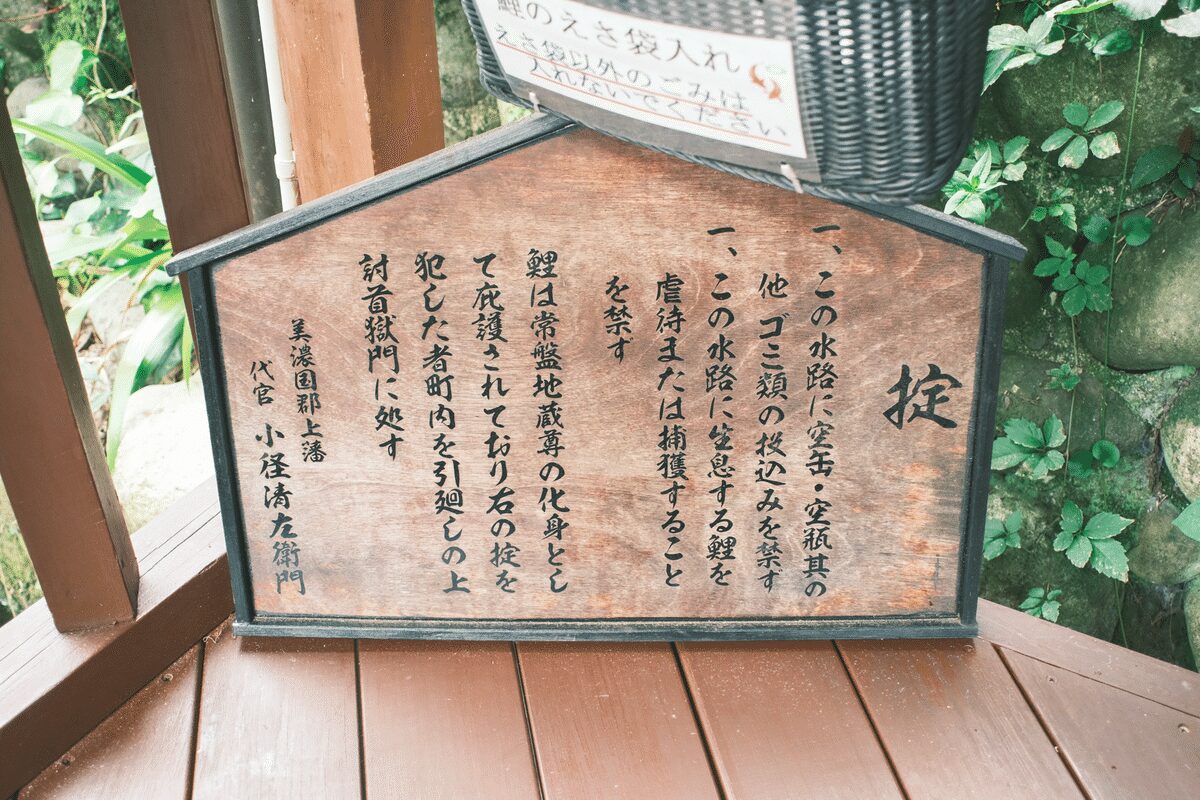 鯉のえさ袋入れ
えさ袋以外のごみは
入れないでください
掟
一、この水路に空缶・空瓶其の
他ゴミ類の投込みを禁ず
一、この水路に生息する鯉を
虐待または捕獲すること
を禁ず
鯉は常盤地蔵尊の化身とし
て庇護されており右の掟を
犯した者町内を引廻しの上
討首獄門に処す
美濃国郡上藩
代官 小径清左衛門